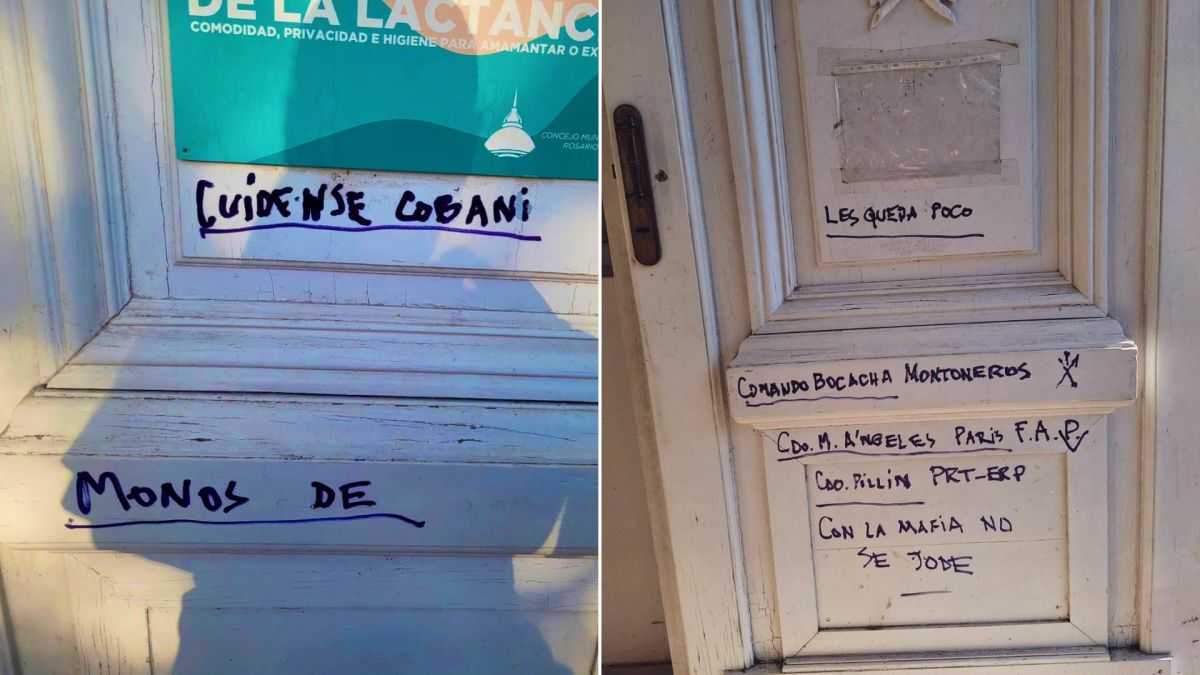 DE LA LACTANC
COMODIDAD, PRIVACIDAD E HIGIENE PARA AMAMANTAR O EX
CONCEJO MUN
ROSARIO
CUÍDENSE COBANI
MONOS DE
LES QUEDA POCO
COMANDO BOCACHA MONTONEROS
CDO. M. ÁNGELES PARIS F.A.P.
CDO. PILLÍN PRT-ERP
CON LA MAFIA NO
SE JODE